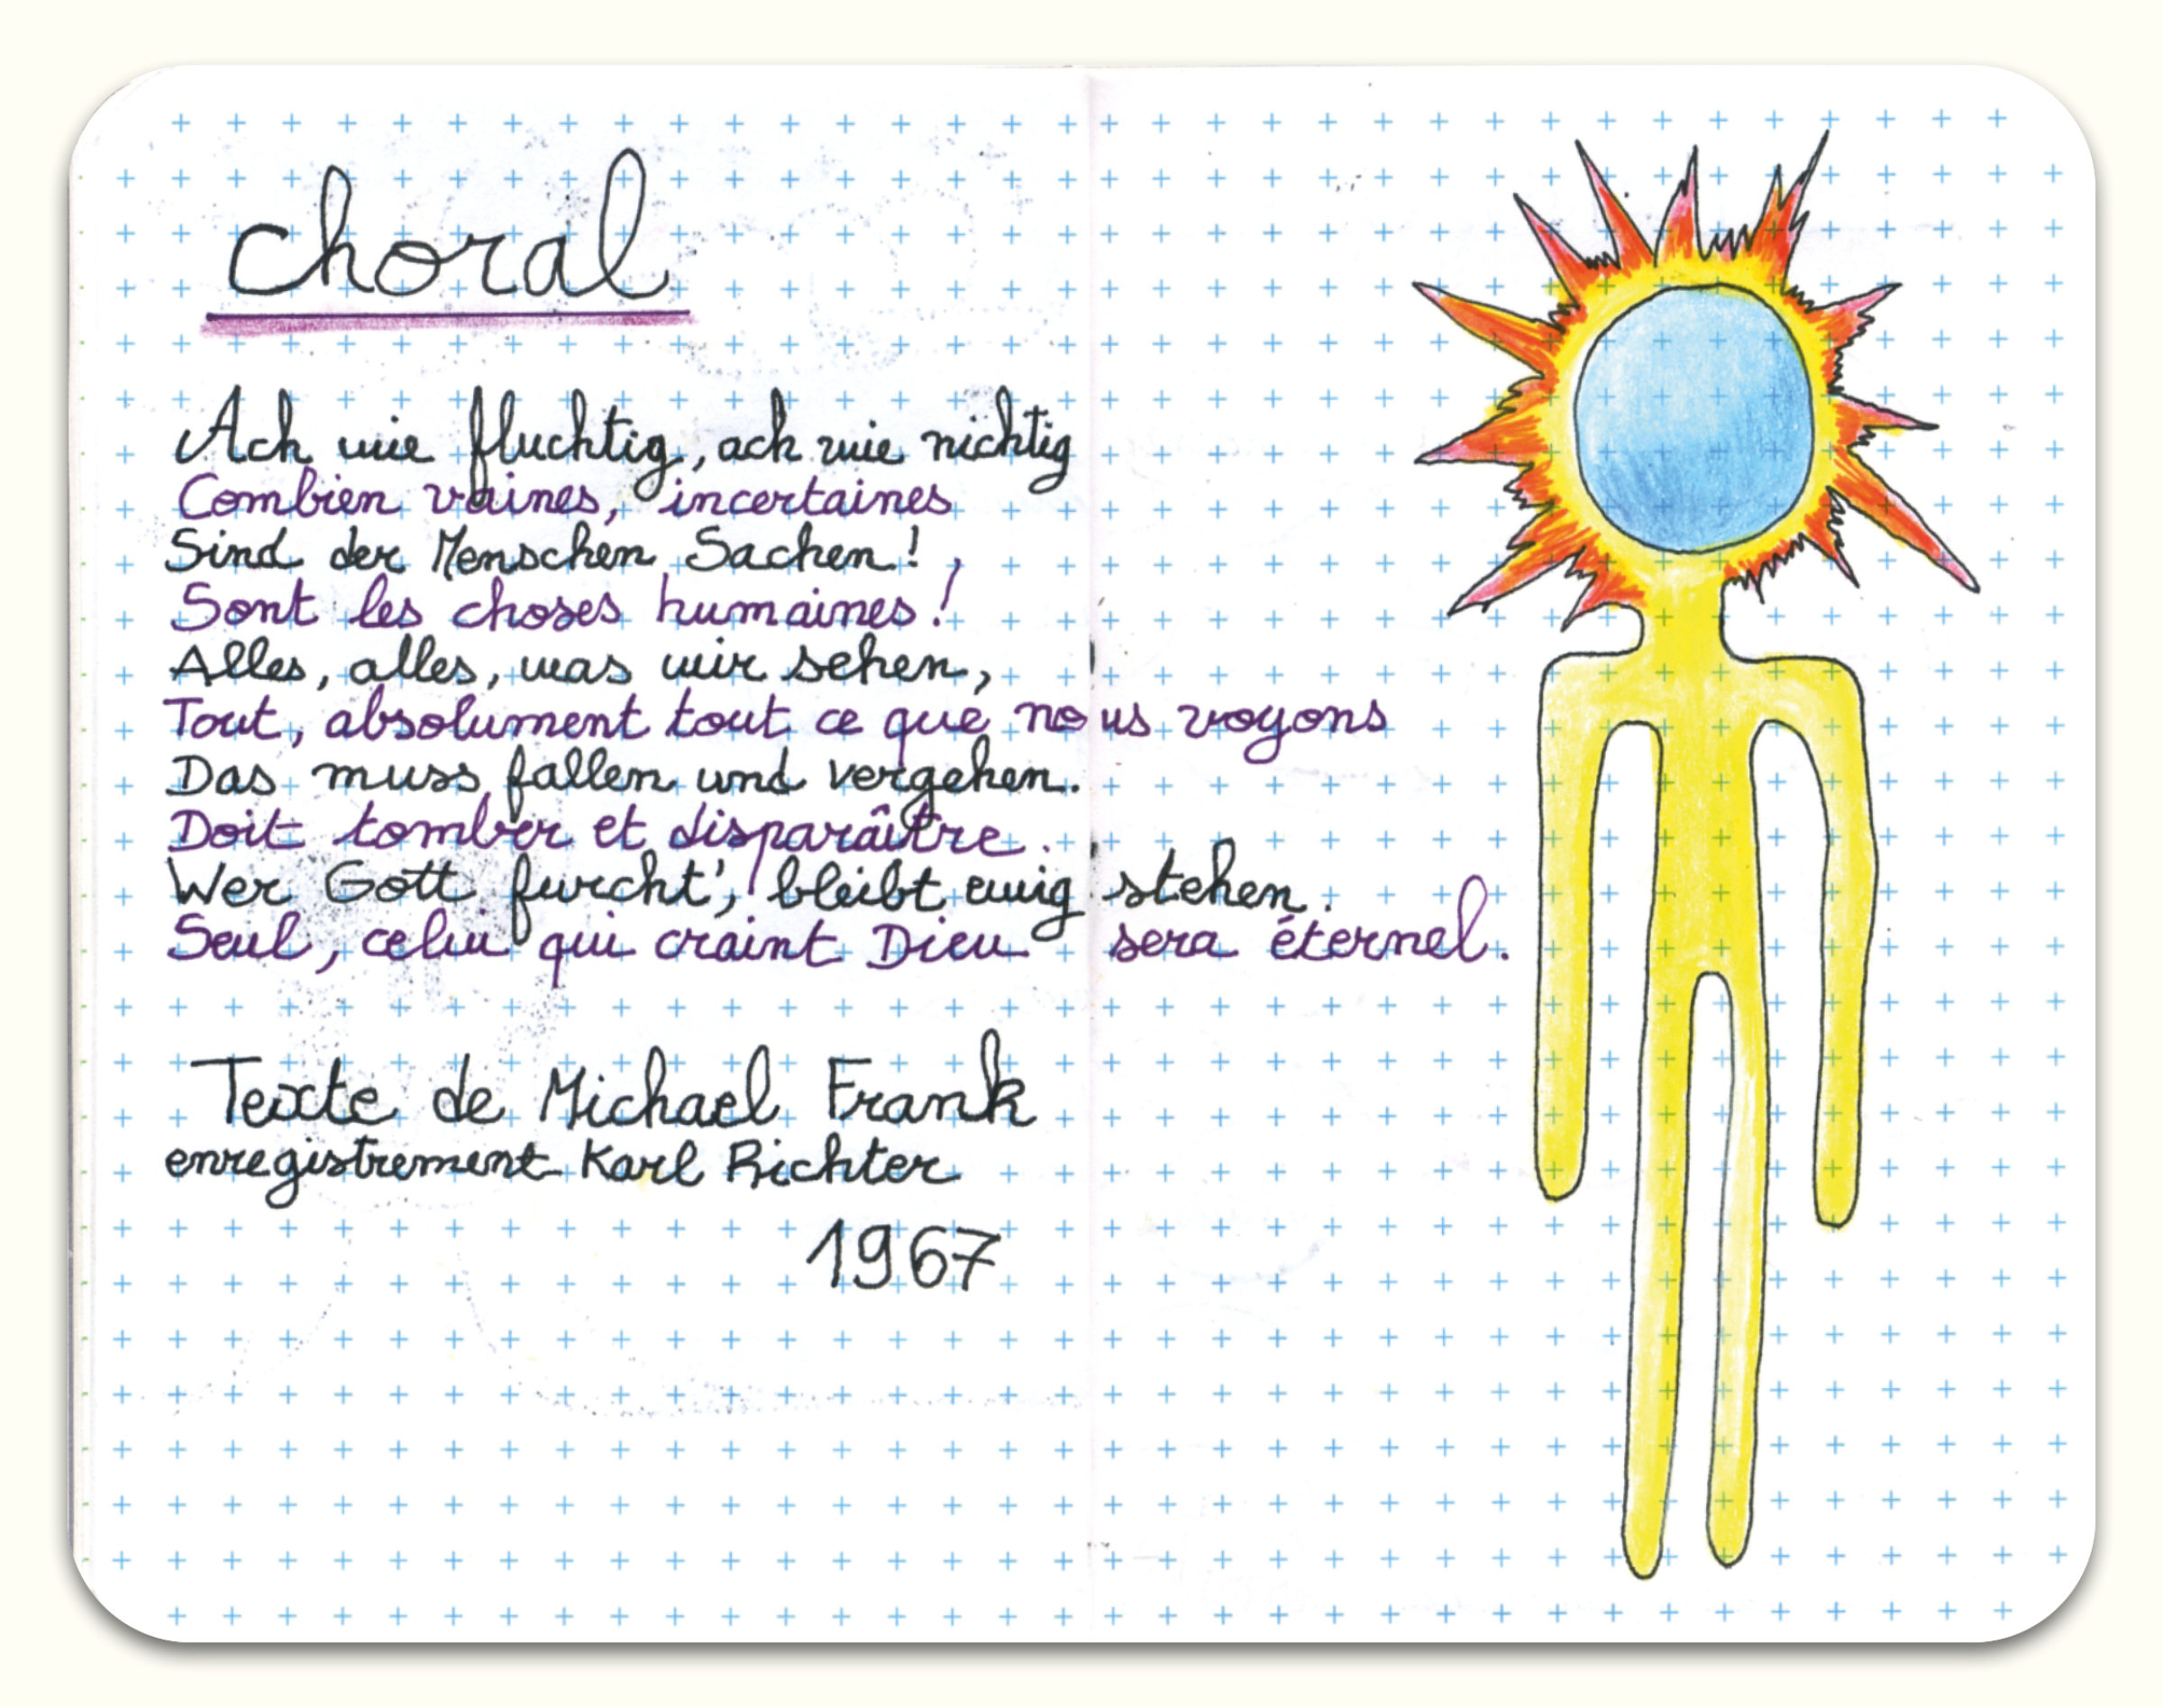 choral
Ach wie fluchtig, ach wie nichtig
Combien vaines, incertaines
Sind der Menschen Sachen!
Sont les choses humaines!
Alles, alles, was wir sehen,
Tout, absolument tout ce que nous voyons
Das muss fallen und vergehen.
Doit tomber et disparaître.
Wer Gott furcht', bleibt ewig stehen.
Seul, celui qui craint Dieu sera éternel.
Texte de Michael Frank
enregistrement Karl Richter
1967